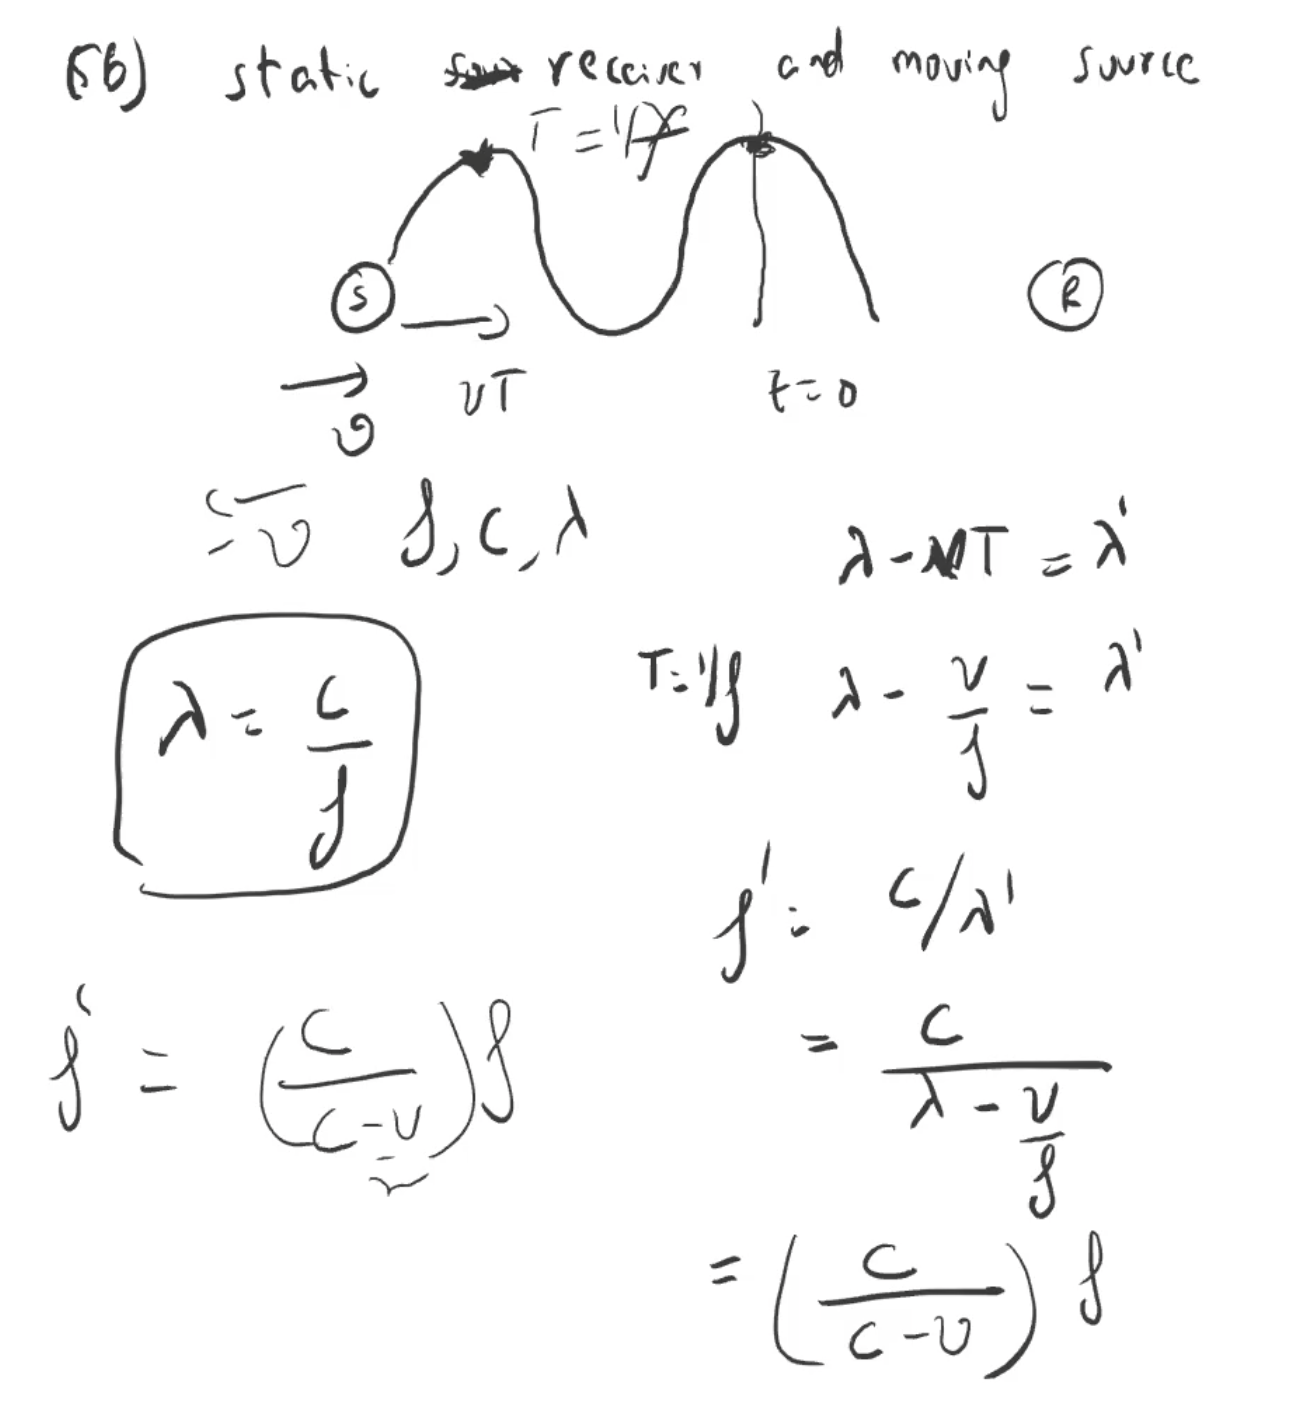 5b) static receiver and moving source
T = 1/f
S
R
vT
t = 0
v
f, c, λ
λ - vT = λ'
λ = c/f
T = 1/f
λ - v/f = λ'
f' = c/λ'
= c/(λ - v/f)
f' = (c/(c-v)) f
= (c/(c-v)) f